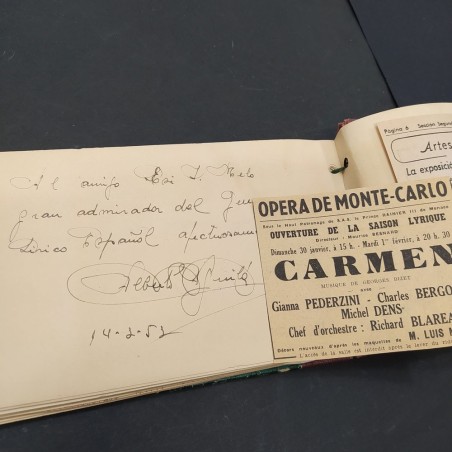 Al amigo
gran admirador del
Lírico Español
14-2-52
Pagina 6 Session
Artes
La exposició
OPERA DE MONTE-CARLO
Sous le Haut Patronage de S.A.S. le Prince RAINIER III de Monaco
OUVERTURE DE LA SAISON LYRIQUE
Directeur : Maurice BESNARD
Dimanche 30 janvier, à 15 h. - Mardi 1er février, à 20 h. 30
CARMEN
MUSIQUE DE GEORGES BIZET
avec
Gianna PEDERZINI - Charles BERGO
Michel DENS
Chef d'orchestre : Richard BLAREA
Décors nouveaux d'après les maquettes de M. LUIS M
L'accès de la salle est interdit après le lever du